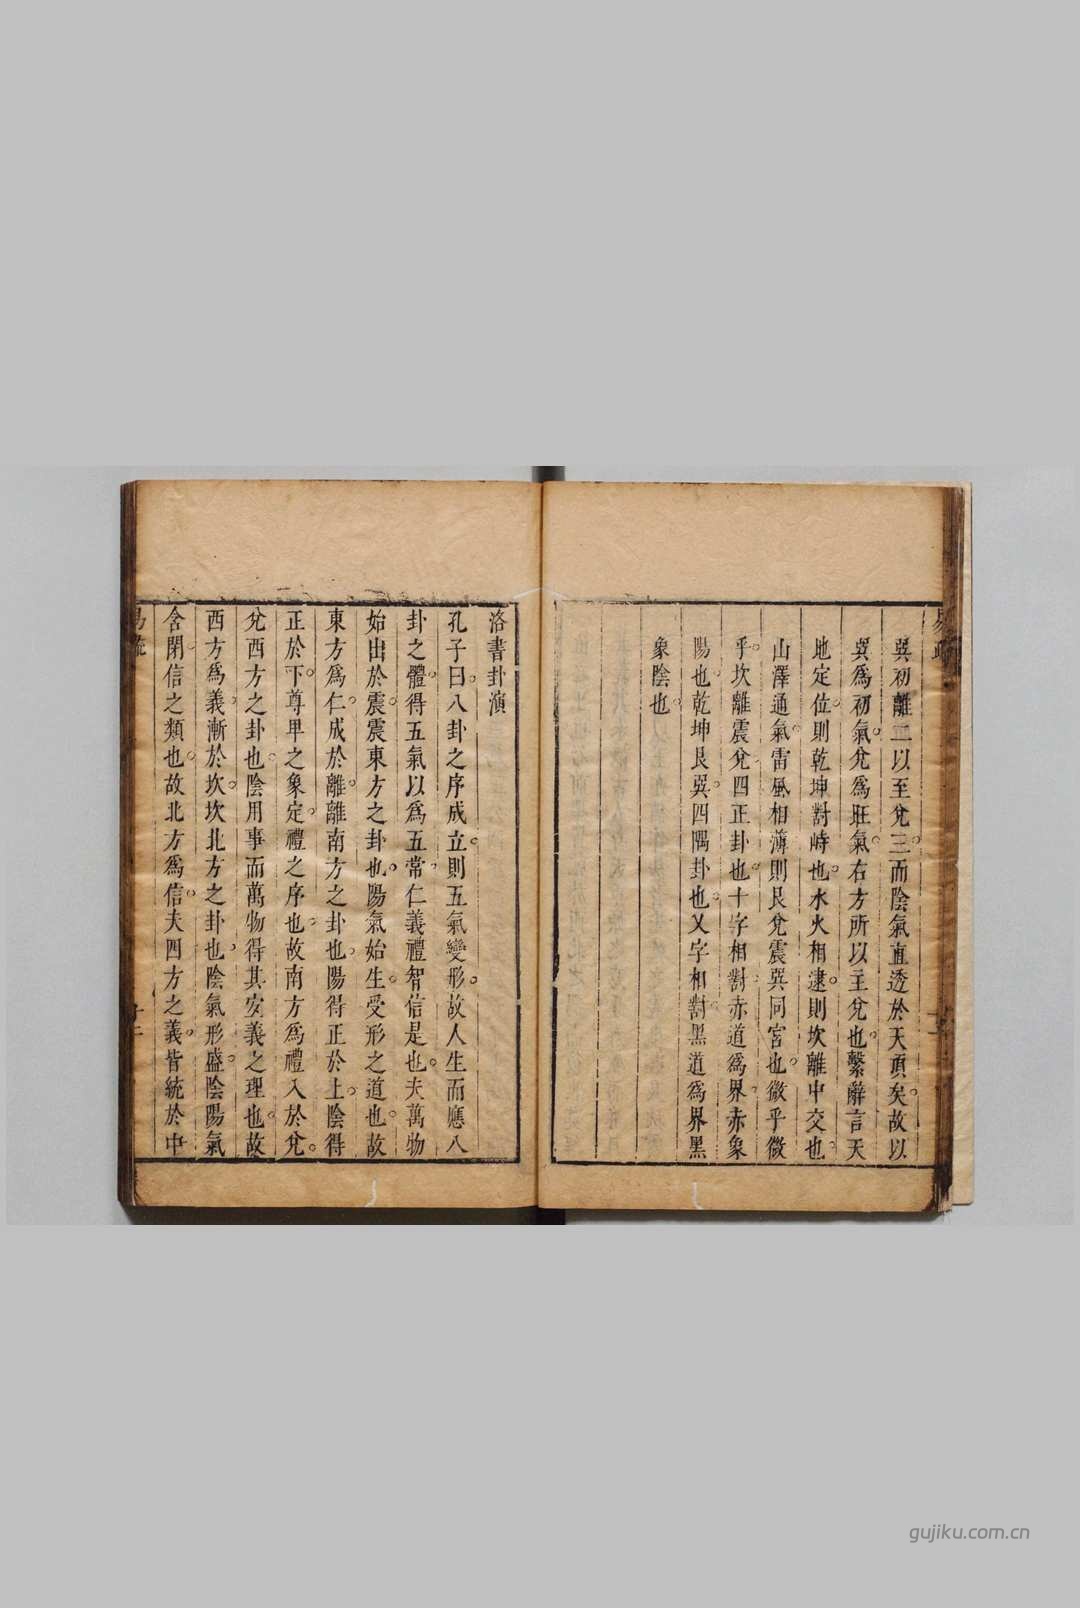 巽初離二以至兌三而陰氣直透於天頂矣故以
巽爲初氣兌爲旺氣右方所以主兌也繫辭言天
地定位則乾坤對峙也水火相逮則坎離中交也
山澤通氣雷風相薄則艮兌震巽同宮也微乎微
乎坎離震兌四正卦也十字相對赤道爲界赤象
陽也乾坤艮巽四隅卦也乂字相對黑道爲界黑
象陰也
洛書卦演
孔子曰八卦之序成立則五氣變形故人生而應八
卦之體得五氣以爲五常仁義禮智信是也夫萬物
始出於震震東方之卦也陽氣始生受形之道也故
東方爲仁成於離離南方之卦也陽得正於上陰得
正於下尊卑之象定禮之序也故南方爲禮入於兌
兌西方之卦也陰用事而萬物得其安義之理也故
西方爲義漸於坎坎北方之卦也陰氣形盛陰陽氣
含閉信之類也故北方爲信夫四方之義皆統於中
gujiku.com.cn